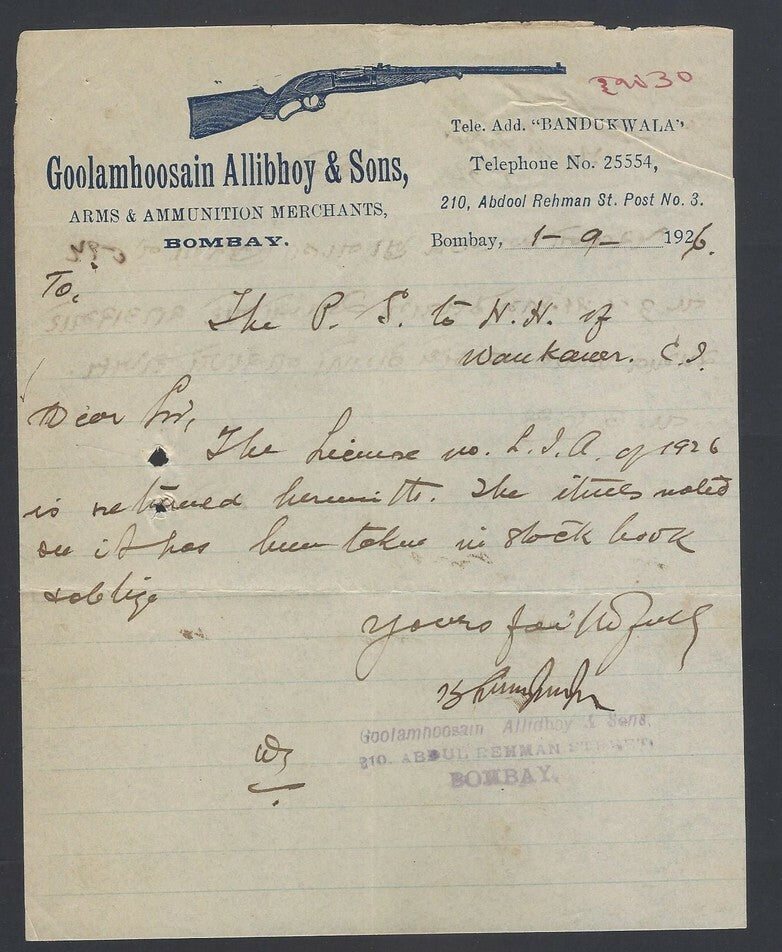 Tele. Add. "BANDUKWALA"
Goolamhoosain Allibhoy & Sons,
Telephone No. 25554,
ARMS & AMMUNITION MERCHANTS,
210, Abdool Rehman St. Post No. 3.
BOMBAY.
Bombay, 1-9- 1926.
To,
The P. S. to H. H. of
Wankaner. C.I.
Dear Sir,
The License no. L.I.A. of 1926
is returned herewith. The items noted
on it has been taken in stock book
& oblige
Yours faithfully
Goolamhoosain Allibhoy & Sons,
210. ABDUL REHMAN STREET,
BOMBAY.